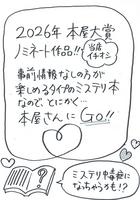 2026年本屋大賞
ノミネート作品!!
当店
イチオシ
事前情報なしの方が
楽しめるタイプのミステリ本
なので、とにかく…
本屋さんにGo!!
ミステリ中毒症に
なっちゃうかも!?